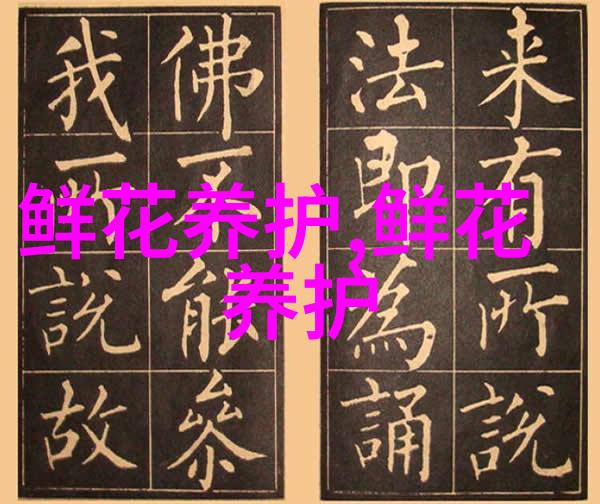 鲜花养护,鲜花
养护
来有所說
法即為誦
佛不能參
我所說故